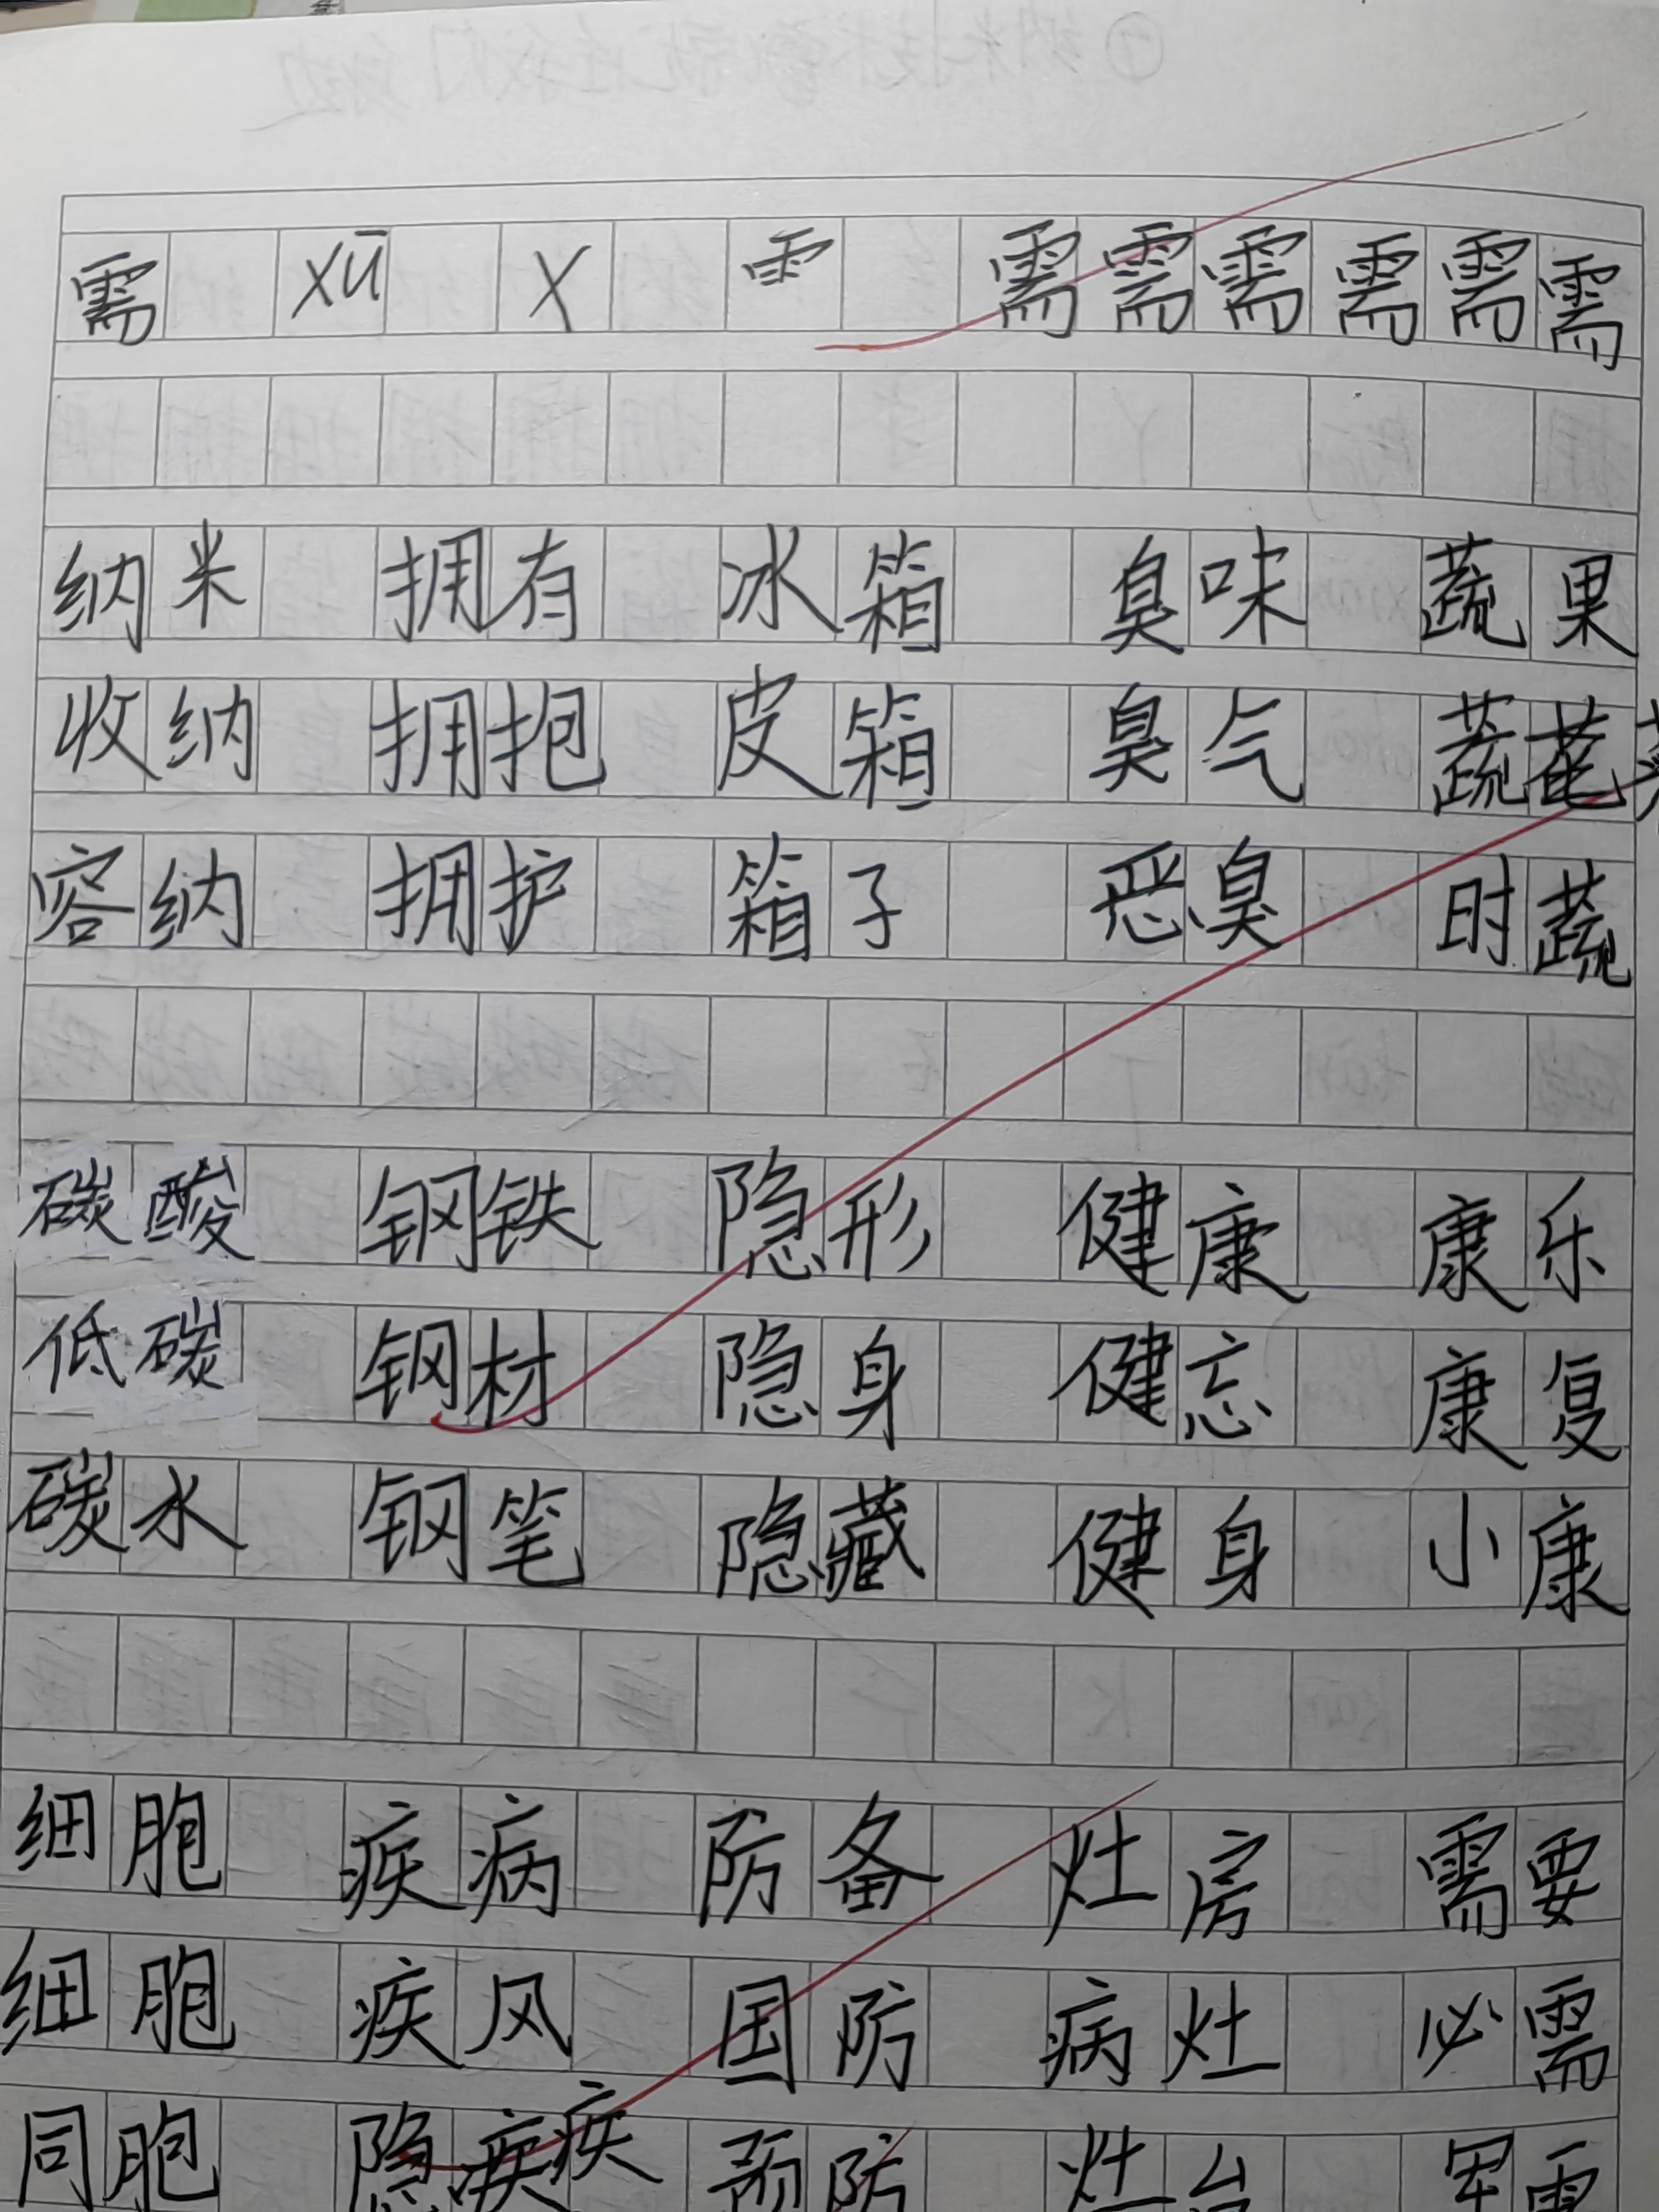 需 xū X ⻗ 需 需 需 需 需 需
纳米 拥有 冰箱 臭味 蔬果
收纳 拥抱 皮箱 臭气 蔬菜
容纳 拥护 箱子 恶臭 时蔬
碳酸 钢铁 隐形 健康 康乐
低碳 钢材 隐身 健忘 康复
碳水 钢笔 隐藏 健身 小康
细胞 疾病 防备 灶房 需要
细胞 疾风 国防 病灶 必需
同胞 隐疾 预防 灶台 军需